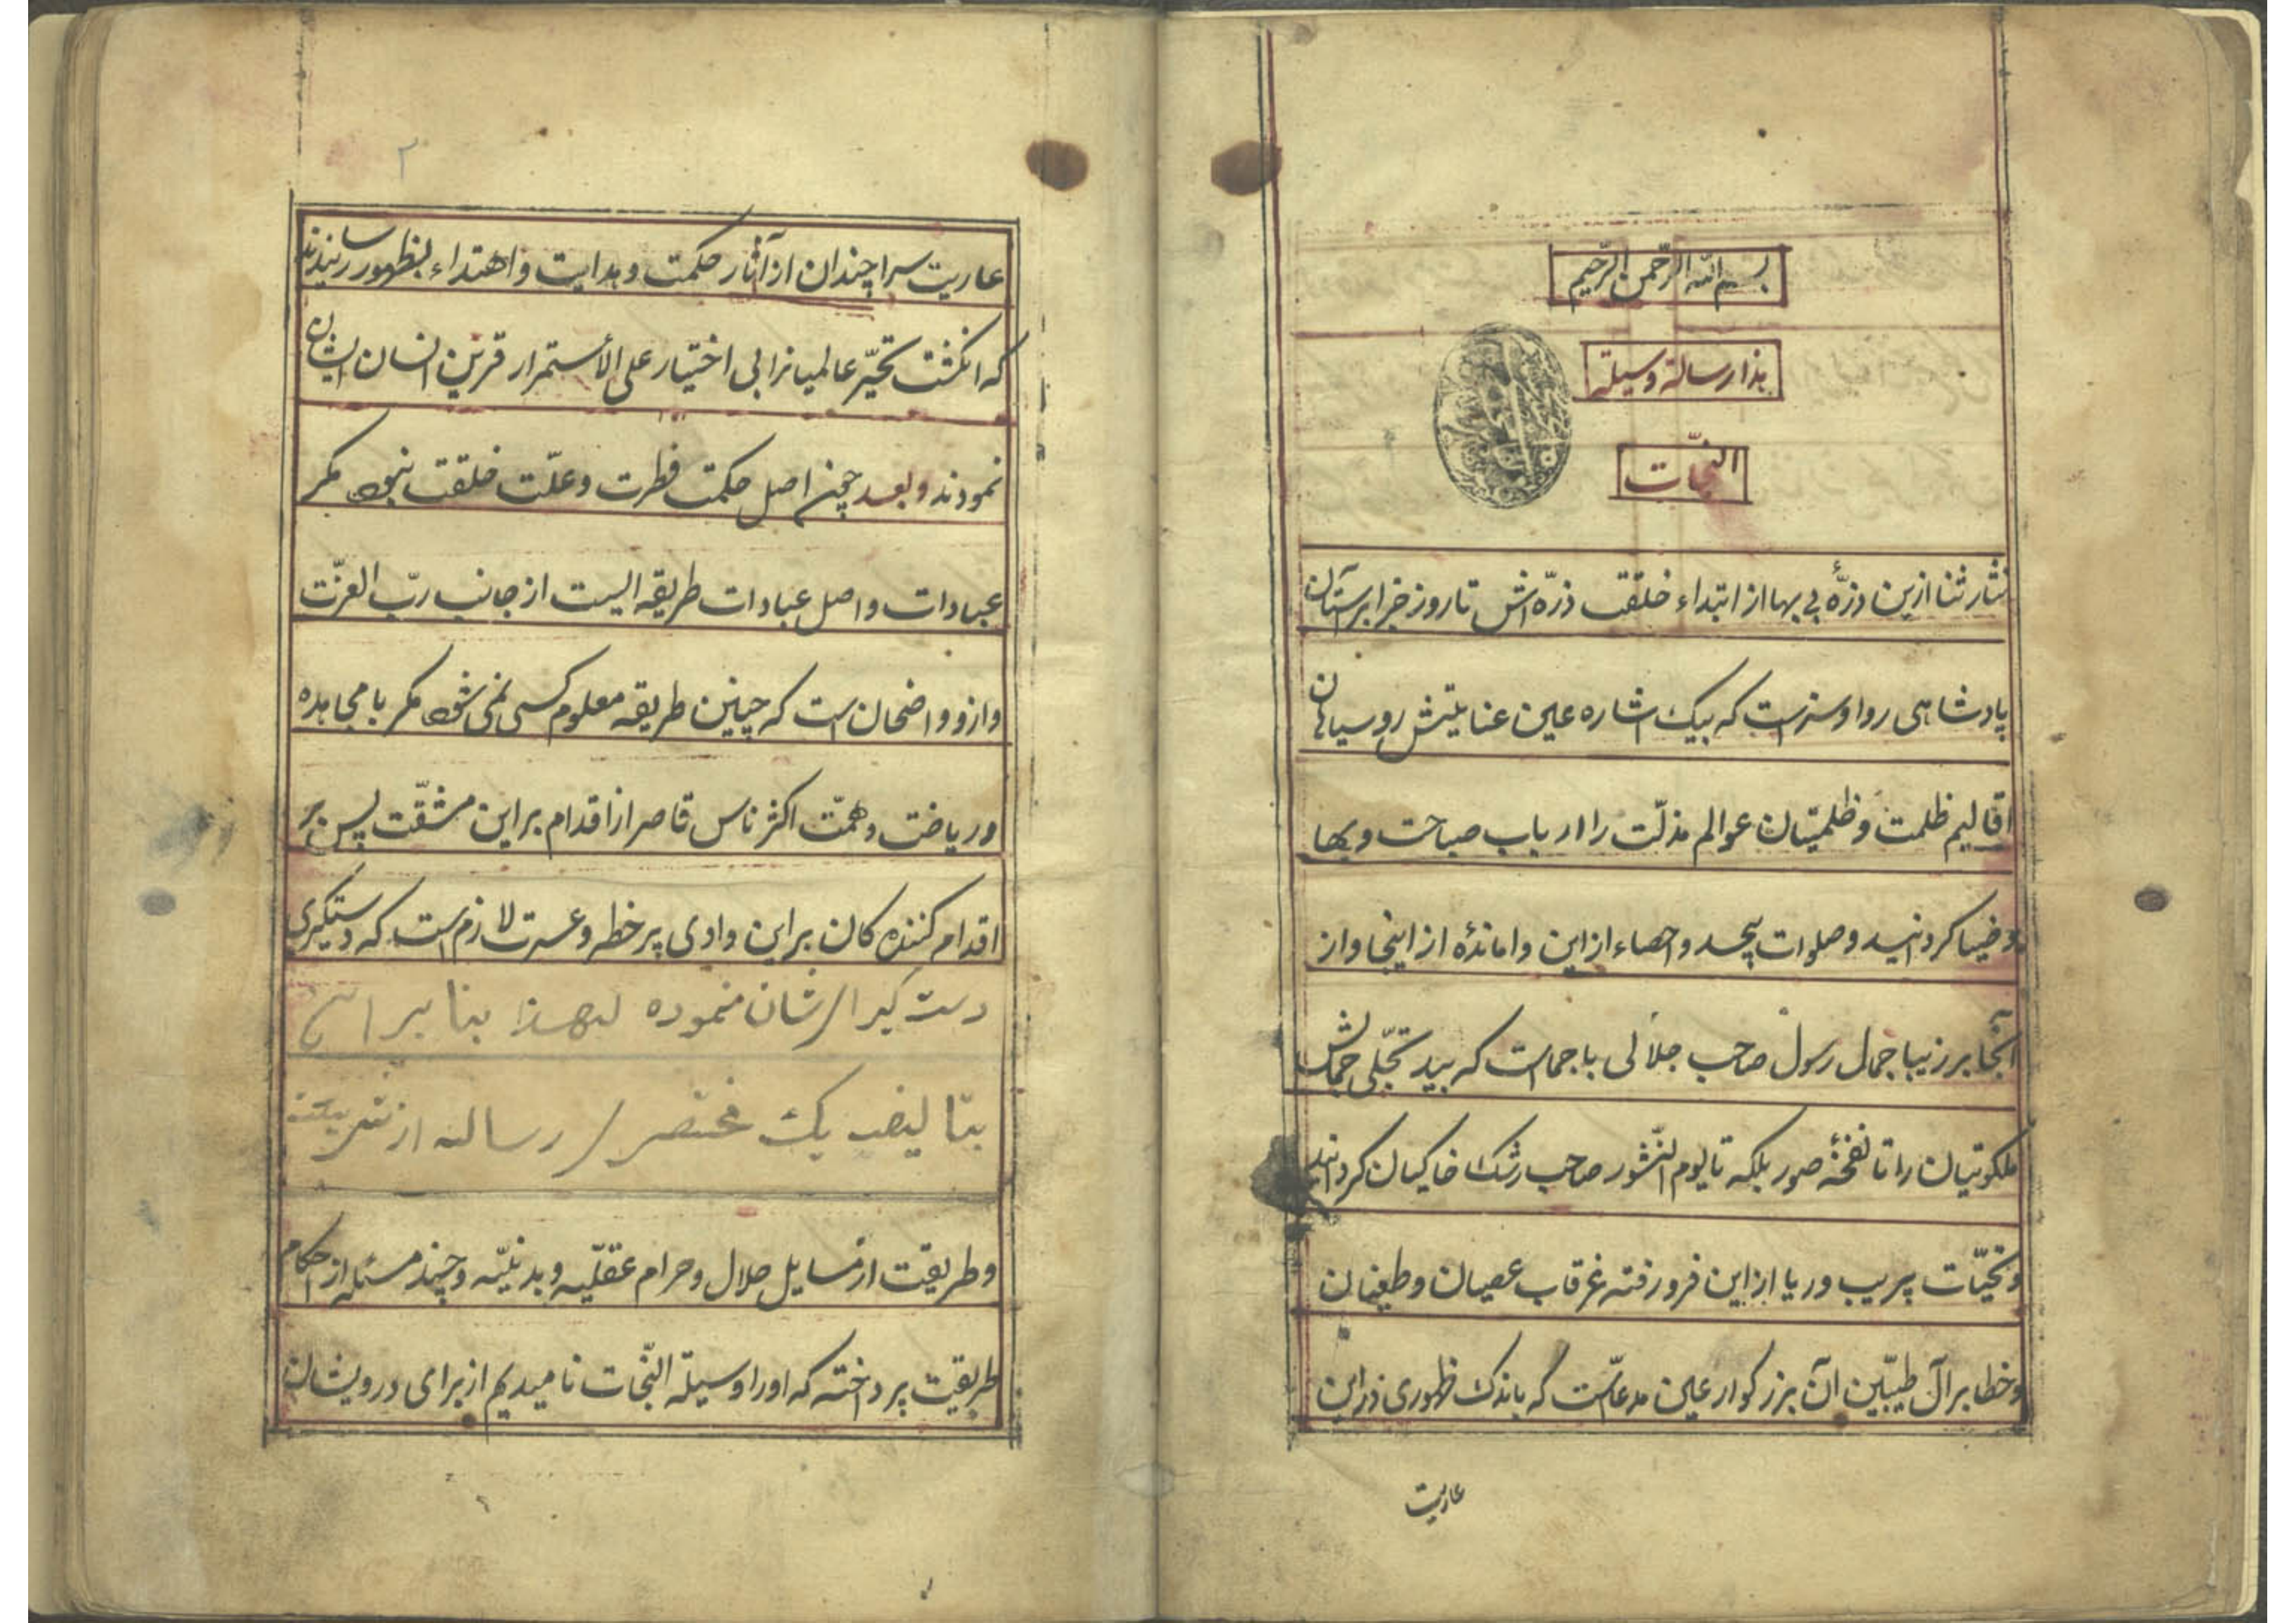 بسم الله الرحمن الرحیم
هذا رسالة وسیلة
النجّات
نثار ثنا ازین ذرّهٔ بی بها از ابتداء خلقت ذرّه اش تا روز جزا بر آستان
پادشاهی روا و سزاست که بیک اشاره عین عنایتش روسیاهان
اقالیم ظلمت و ظلمتیان عوالم مذلّت را ارباب صباحت و بها
و ضیا کردانید و صلوات بیحد و احصاء از این واماندهٔ از اینجا و از
آنجا بر زیبا جمال رسول صاحب جلالی با جمالست که بید تجلّی جمالش
ملکوتیان را تا نفخهٔ صور بلکه تا یوم النّشور صاحب رشک خاکیان کردانید
و تحیّات پر یب و ریا از این فرو رفته غرقاب عصیان و طغیان
و خطا بر آل طیّبین آن بزرکوار عین مدعاست که باندک ظهوری در این
عاریت
۲
عاریت سرا چندان از آثار حکمت و هدایت و اهتداء بظهور رسانیدند
که انکشت تحیّر عالمیانرا بی اختیار علی الأستمرار قرین انسان ایشان
نمودند و بعد چون اصل حکمت فطرت و علّت خلقت نبود مکر
عبادات و اصل عبادات طریقه الیست از جانب ربّ العزّت
و از و واضحان است که چنین طریقه معلوم کسی نمی شود مکر با مجاهده
و ریاضت و همّت اکثر ناس قاصر از اقدام بر این مشقّت پس بر
اقدام کننده کان بر این وادی پر خطر و عسرت لازم است که دستکیری
دست کیرا ایشان نموده لهذا بنا بر این
بتالیف یک مختصر رساله از شریعت
و طریقت از مسایل حلال و حرام عقلیّه و بدنیّه و چند مسئله از احکام
طریقت پرداخته که اورا وسیلة النّجات نامیدیم از برای درویشان